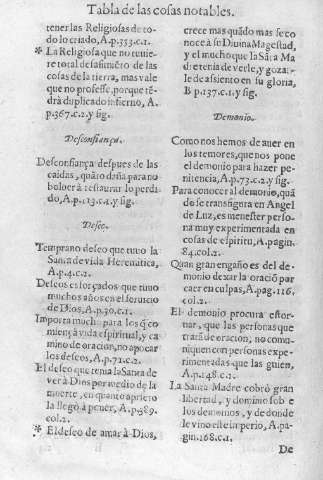 Tabla de las cosas notables.
tener las Religiosas de to-
do lo criado, A.p.353.c.1.
* La Religiosa que no tuuie-
re total desasimiẽto de las
cosas de la tierra, mas vale
que no professe, porque tẽ-
drà duplicado infierno, A.
p.367.c.2.y sig.
Desconfiança.
Desconfiança despues de las
caidas, quãto daña para no
boluer à restaurar lo perdi-
do, A.p.113.c.1.y sig.
Deseo.
Temprano deseo que tuuo la
Santa de vida Heremitica,
A.p.4.c.2.
Deseos esforçados que tuuo
muchos años en el seruicio
de Dios, A.p.30.c.1.
Importa mucho para los q̃ co-
miençã vida espiritual, y ca
mino de oracion, no apocar
los deseos, A.p.71.c.2.
El deseo que tenia la Santa de
ver à Dios por medio de la
muerte, en quanto aprieto
la llegò à poner, A.p.589.
col.2.
* El deseo de amar à Dios,
crece mas quãdo mas se co
noce à su Diuina Magestad,
y el mucho que la Sãta Ma
dre tenia de verle, y gozar-
le de asiento en su gloria,
B p.137.c.1.y sig.
Demonio.
Como nos hemos de auer en
los temores, que nos pone
el demonio para hazer pe-
nitencia, A.p.73.c.2.y sig.
Para conocer al demonio, quã
do se transfigura en Angel
de Luz, es menester perso-
na muy experimentada en
cosas de espiritu, A.pagin.
84.col.2.
Quan gran engaño es del de-
monio dexar la oraciõ por
caer en culpas, A.pag.116.
col.2.
El demonio procura estor-
uar, que las personas que
tratã de oracion, no comu-
niquen con personas expe-
rimentadas que las guien,
A.p.148.c.1.
La Santa Madre cobrò gran
libertad, y dominio sob e
los demonios, y de donde
le vino este imperio, A.pa-
gin.168.c.1.
De